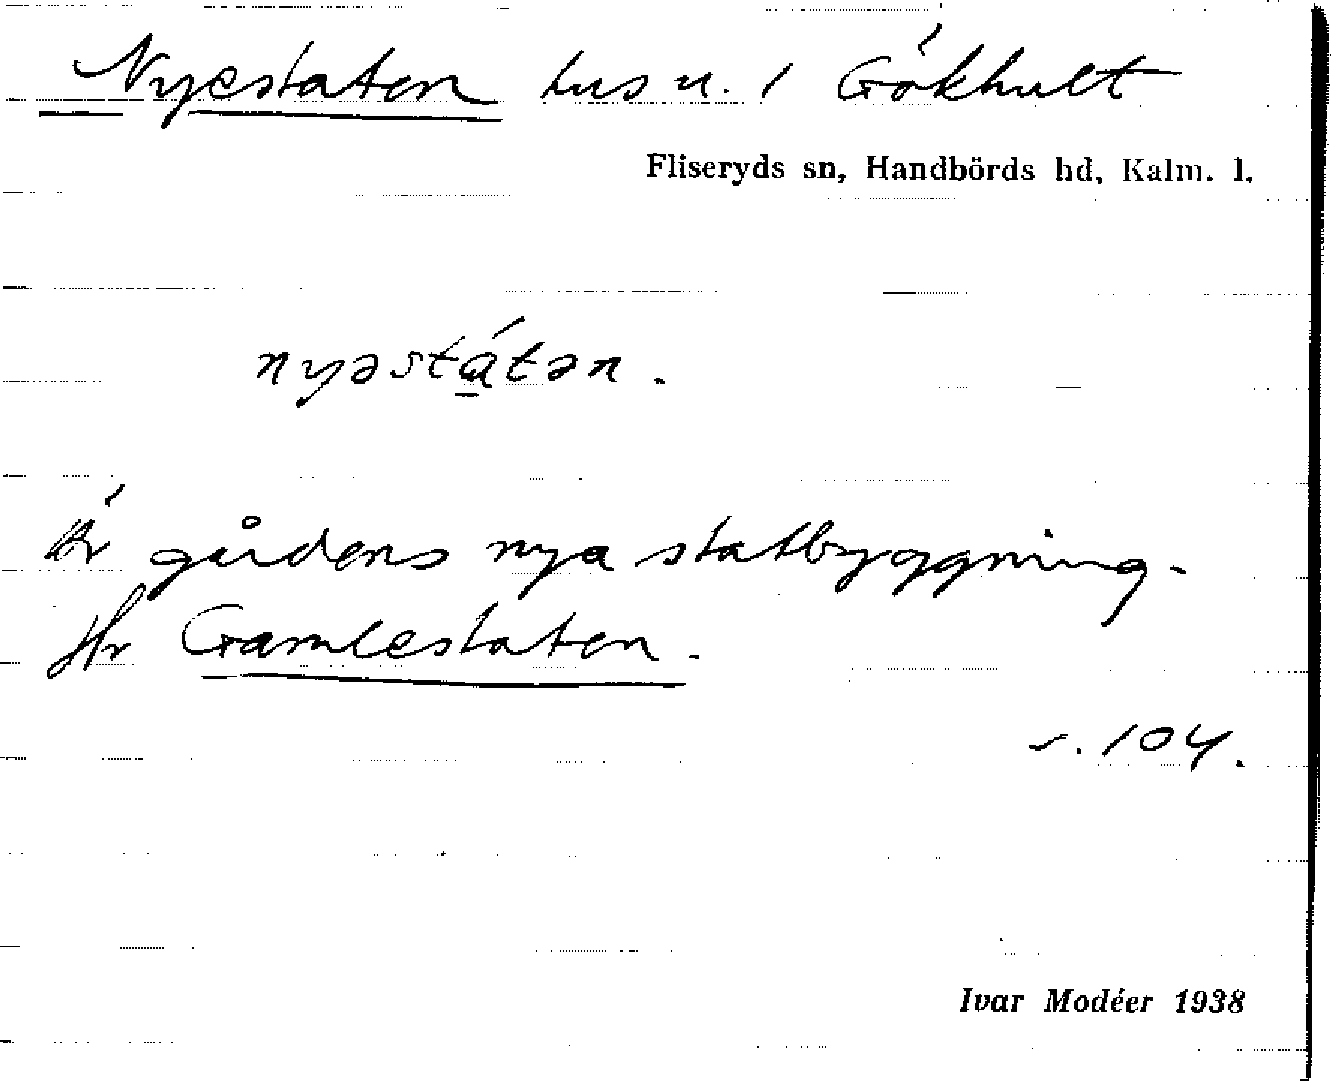 Nyestaten hus u. 1 Gökhult
Fliseryds sn, Handbörds hd, Kalm. l.
nyəstátən.
Är gårdens nya statbyggning.
Jfr Gamlestaten.
s. 104.
Ivar Modéer 1938